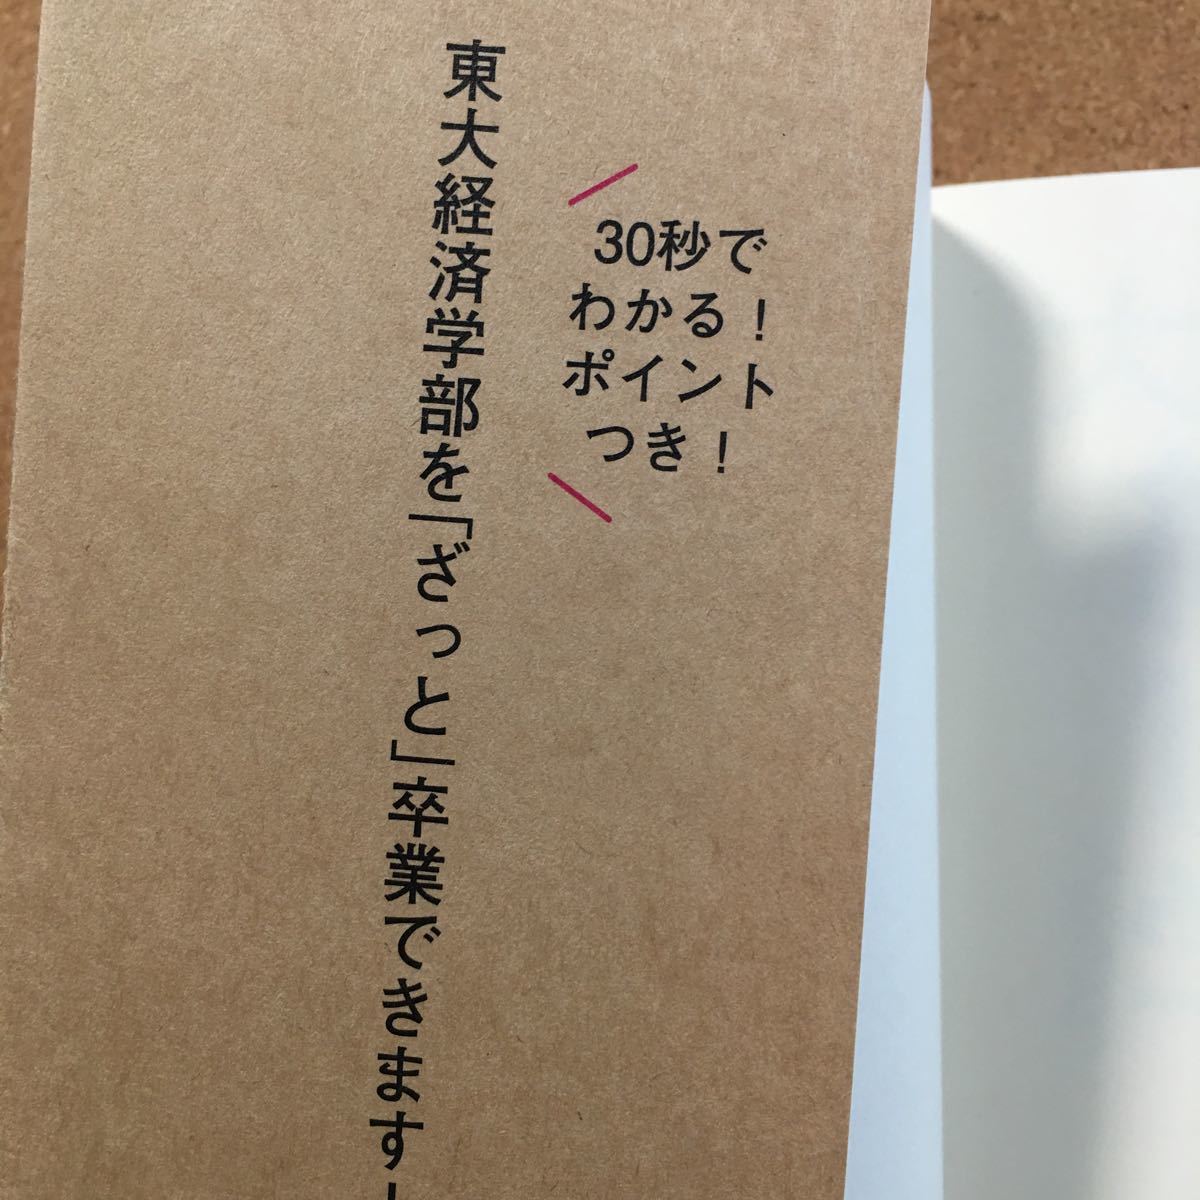 30秒で
わかる！
ポイント
つき！
東大経済学部を「ざっと」卒業できます！